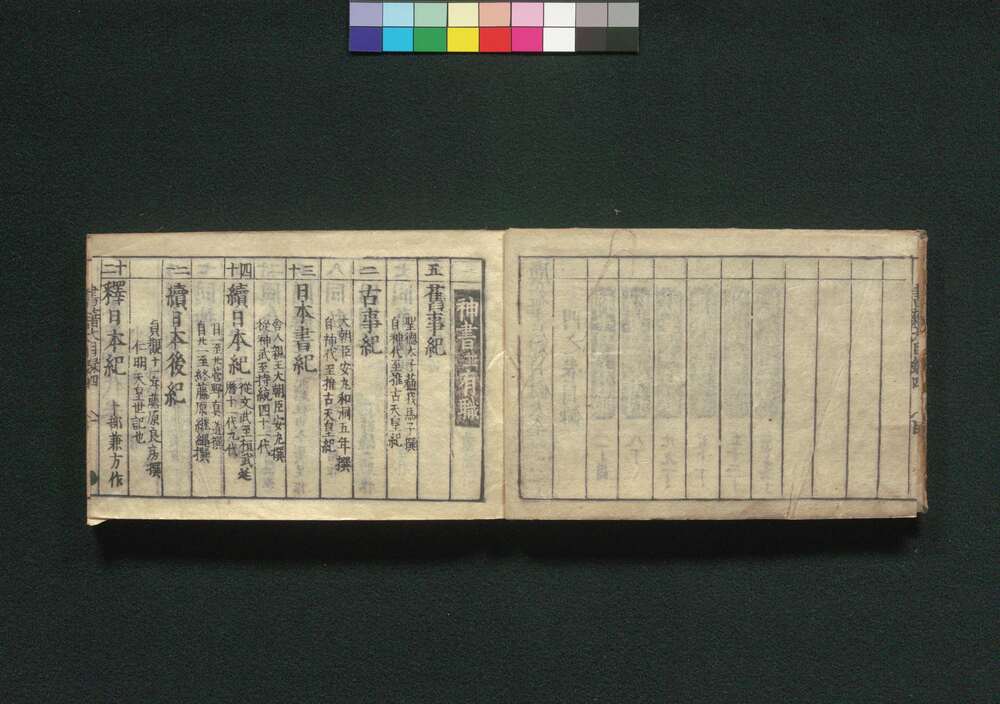 神書並有職
五
舊事紀
聖德太子蘓我馬子撰
自神代至推古天皇紀
二
古事紀
大朝臣安丸和祠五年撰
自神代至推古天皇紀
三十
日本書紀
舎人親王大朝臣安丸撰
從神武至持統四十一代
四十
續日本紀
從文武至桓武延
曆十一代九代
自一至廿菅野真道撰
自廿一至終藤原継縄撰
二
續日本後紀
貞觀十一年藤原良房撰
仁明天皇世記也
十二
釋日本紀
卜部兼方作
書籍大目録四